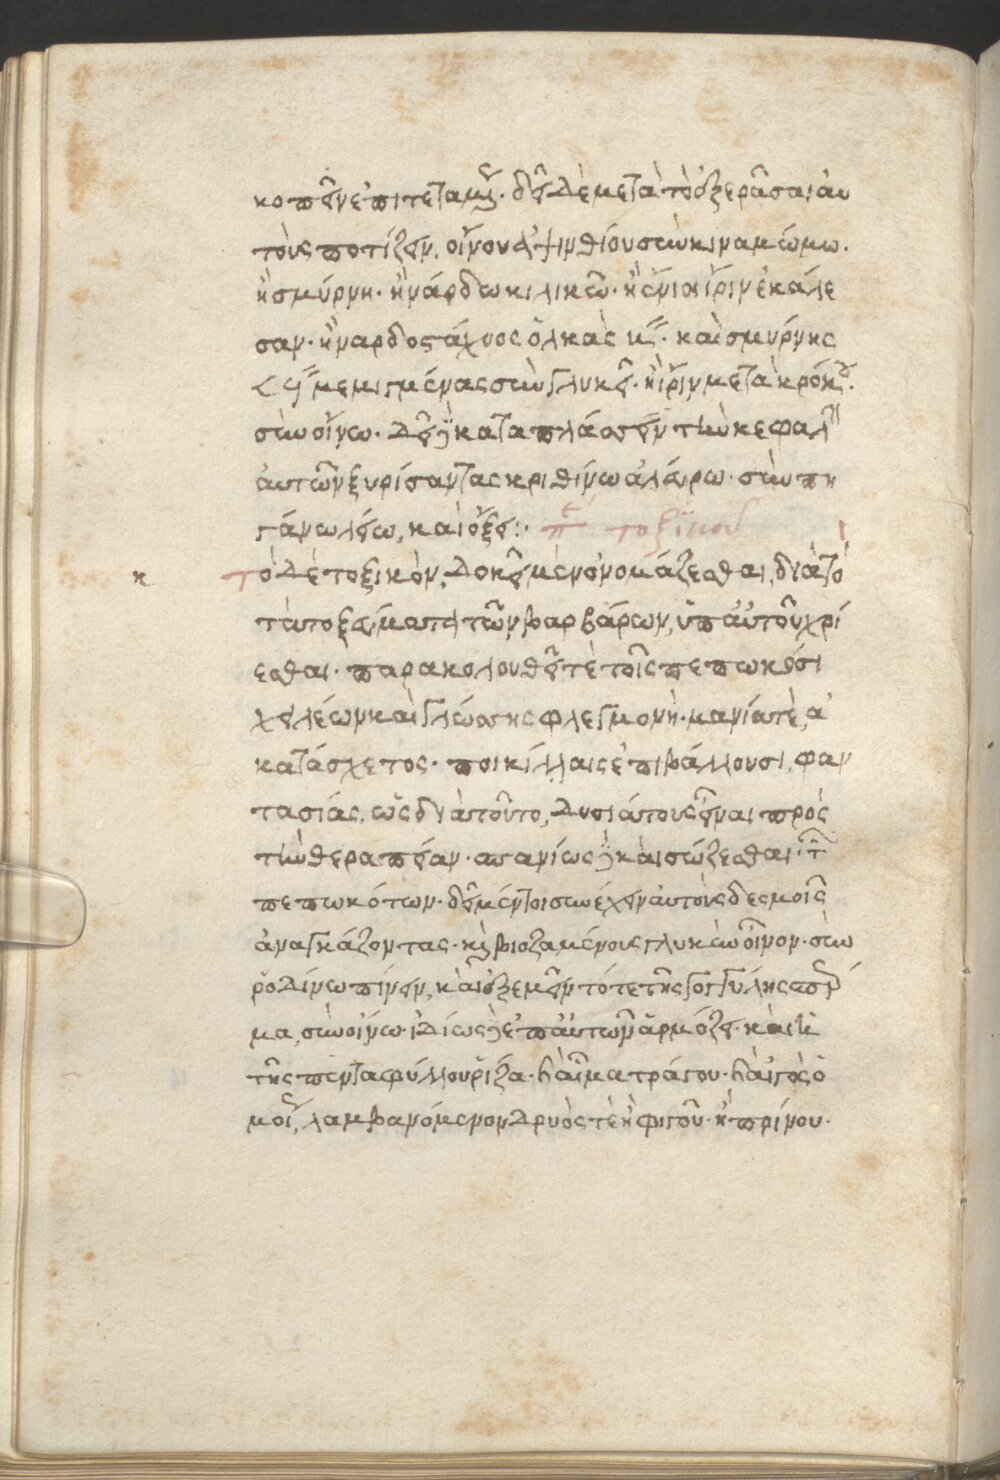 κοπεῖν ἐπιτεταμένως. δεῖ δὲ μετὰ τὸ ἐξερᾶσαι αὐ
τοὺς ποτίζειν. οἴνου ἀψινθίου σὺν κιναμώμω.
ἢ σμύρνη. ἢ νάρδω κιλικῶ. ἢ ἔνιοι ἶριν ἐκάλε
σαν. ἢ ναρδοσταχυος ὁλκὰς καὶ σμύρνης
μεμιγμένας σὺν γλυκεῖ. ἢ ἶριν μετὰ κρόκου.
σὺν οἴνω. δεῖ καταπλάσσειν τὴν κεφαλὴν
αὐτῶν ξυρίσαντας κριθίνω ἀλεύρω. σὺν πη
γάνω λείω, καὶ ὄξει:. περὶ τοξικοῦ
κ τὸ δὲ τοξικὸν, δοκεῖ μὲν ὀνομάζεσθαι, διὰ τὸ
τὰ τοξεύματα τῶν βαρβάρων, ὑπ αὐτοῦ χρί
εσθαι. παρακολουθεῖ τὲ τοῖς πεπωκόσι
χειλέων καὶ γλώσσης φλεγμονὴ. μανία τὲ, ἀ
κατάσχετος. ποικίλλαις ἐπιβάλλουσι, φαν
τασίας, ὡς διὰ τοῦτο, δυσιάτους εἶναι πρὸς
τὴν θεραπείαν. σπανίως δὲ καὶ σώζεσθαι. τ
πεπωκότων. δεῖ μέντοι συνέχειν αὐτοὺς δεσμοῖς
ἀναγκάζοντας. καὶ βιαζομένους γλυκὺν οἶνον. σὺν
ῥοδίνω πίνειν, καὶ ἐξεμεῖν τό τε τῆς γογγύλης σπέρ
μα, σὺν οἴνω. ἰδίως δὲ ἐπ αὐτῶν ἁρμόζει. καὶ ἡ
τῆς πενταφύλλου ῥίζα. ἢ αἷμα τράγου. ἢ αἰγὸς ὁ
μοίως, λαμβανόμενον δρυὸς τὲ ἢ φιγοῦ. ἢ πρίνου.